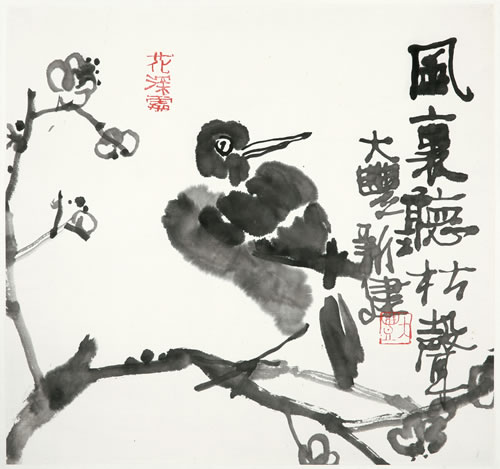 風裏聽枯聲
大豐新建
大豐
花深